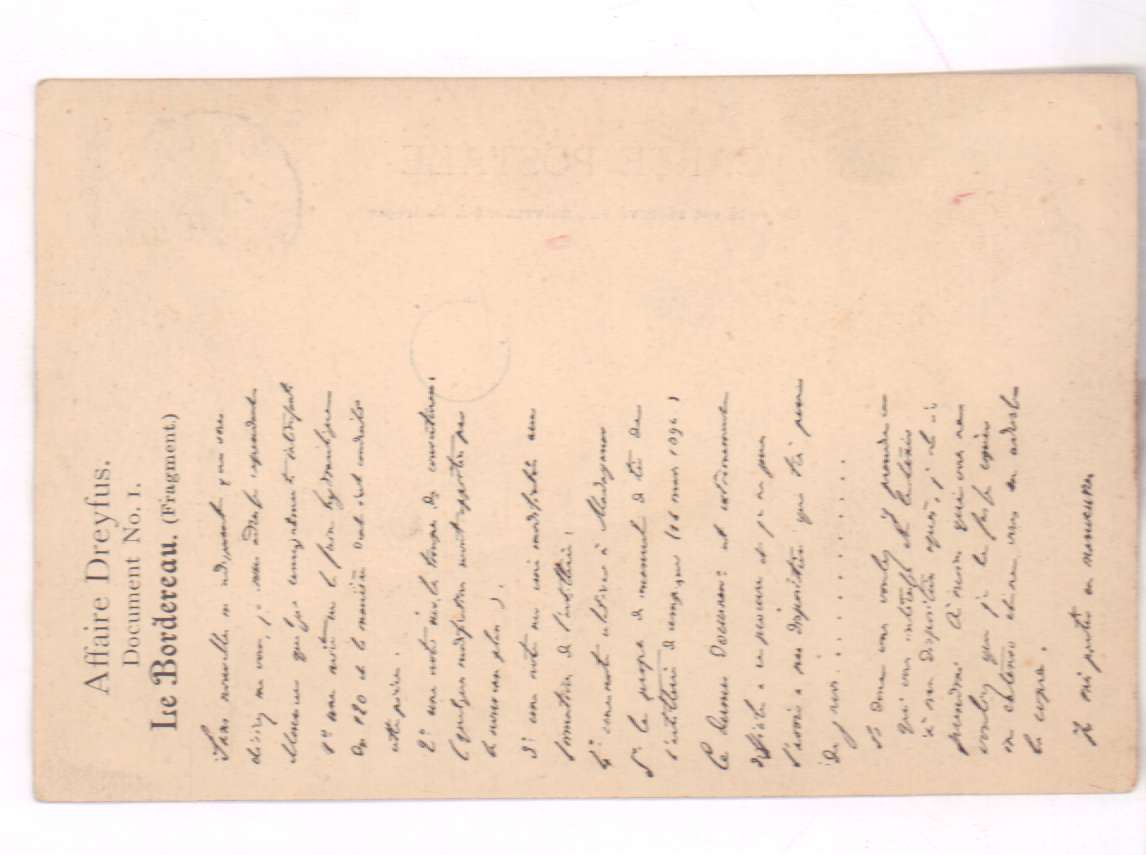 Affaire Dreyfus.
Document No. 1.
Le Bordereau. (Fragment.)
Sans nouvelles m'indiquant que vous
désirez me voir, je vous adresse cependant
Monsieur quelques renseignements intéressants
1º une note sur le frein hydraulique
du 120 et la manière dont s'est conduite
cette pièce.
2º une note sur les troupes de couverture.
(quelques modifications seront apportées par
le nouveau plan).
3º une note sur une modification aux
formations de l'artillerie:
4º une note relative à Madagascar
5º le projet de manuel de tir de
l'artillerie de campagne (14 mars 1894)
Ce dernier Document est extrêmement
difficile à se procurer et je ne puis
l'avoir à ma disposition que très peu
de jours. . . . . . . . . . . .
Si donc vous voulez y prendre ce
qui vous intéresse et le tenir
à ma disposition après, je le
prendrai. À moins que vous ne
vouliez que je le fasse copier
in extenso et ne vous en adresse
la copie.
Je vais partir en manœuvres
CARTE POSTALE